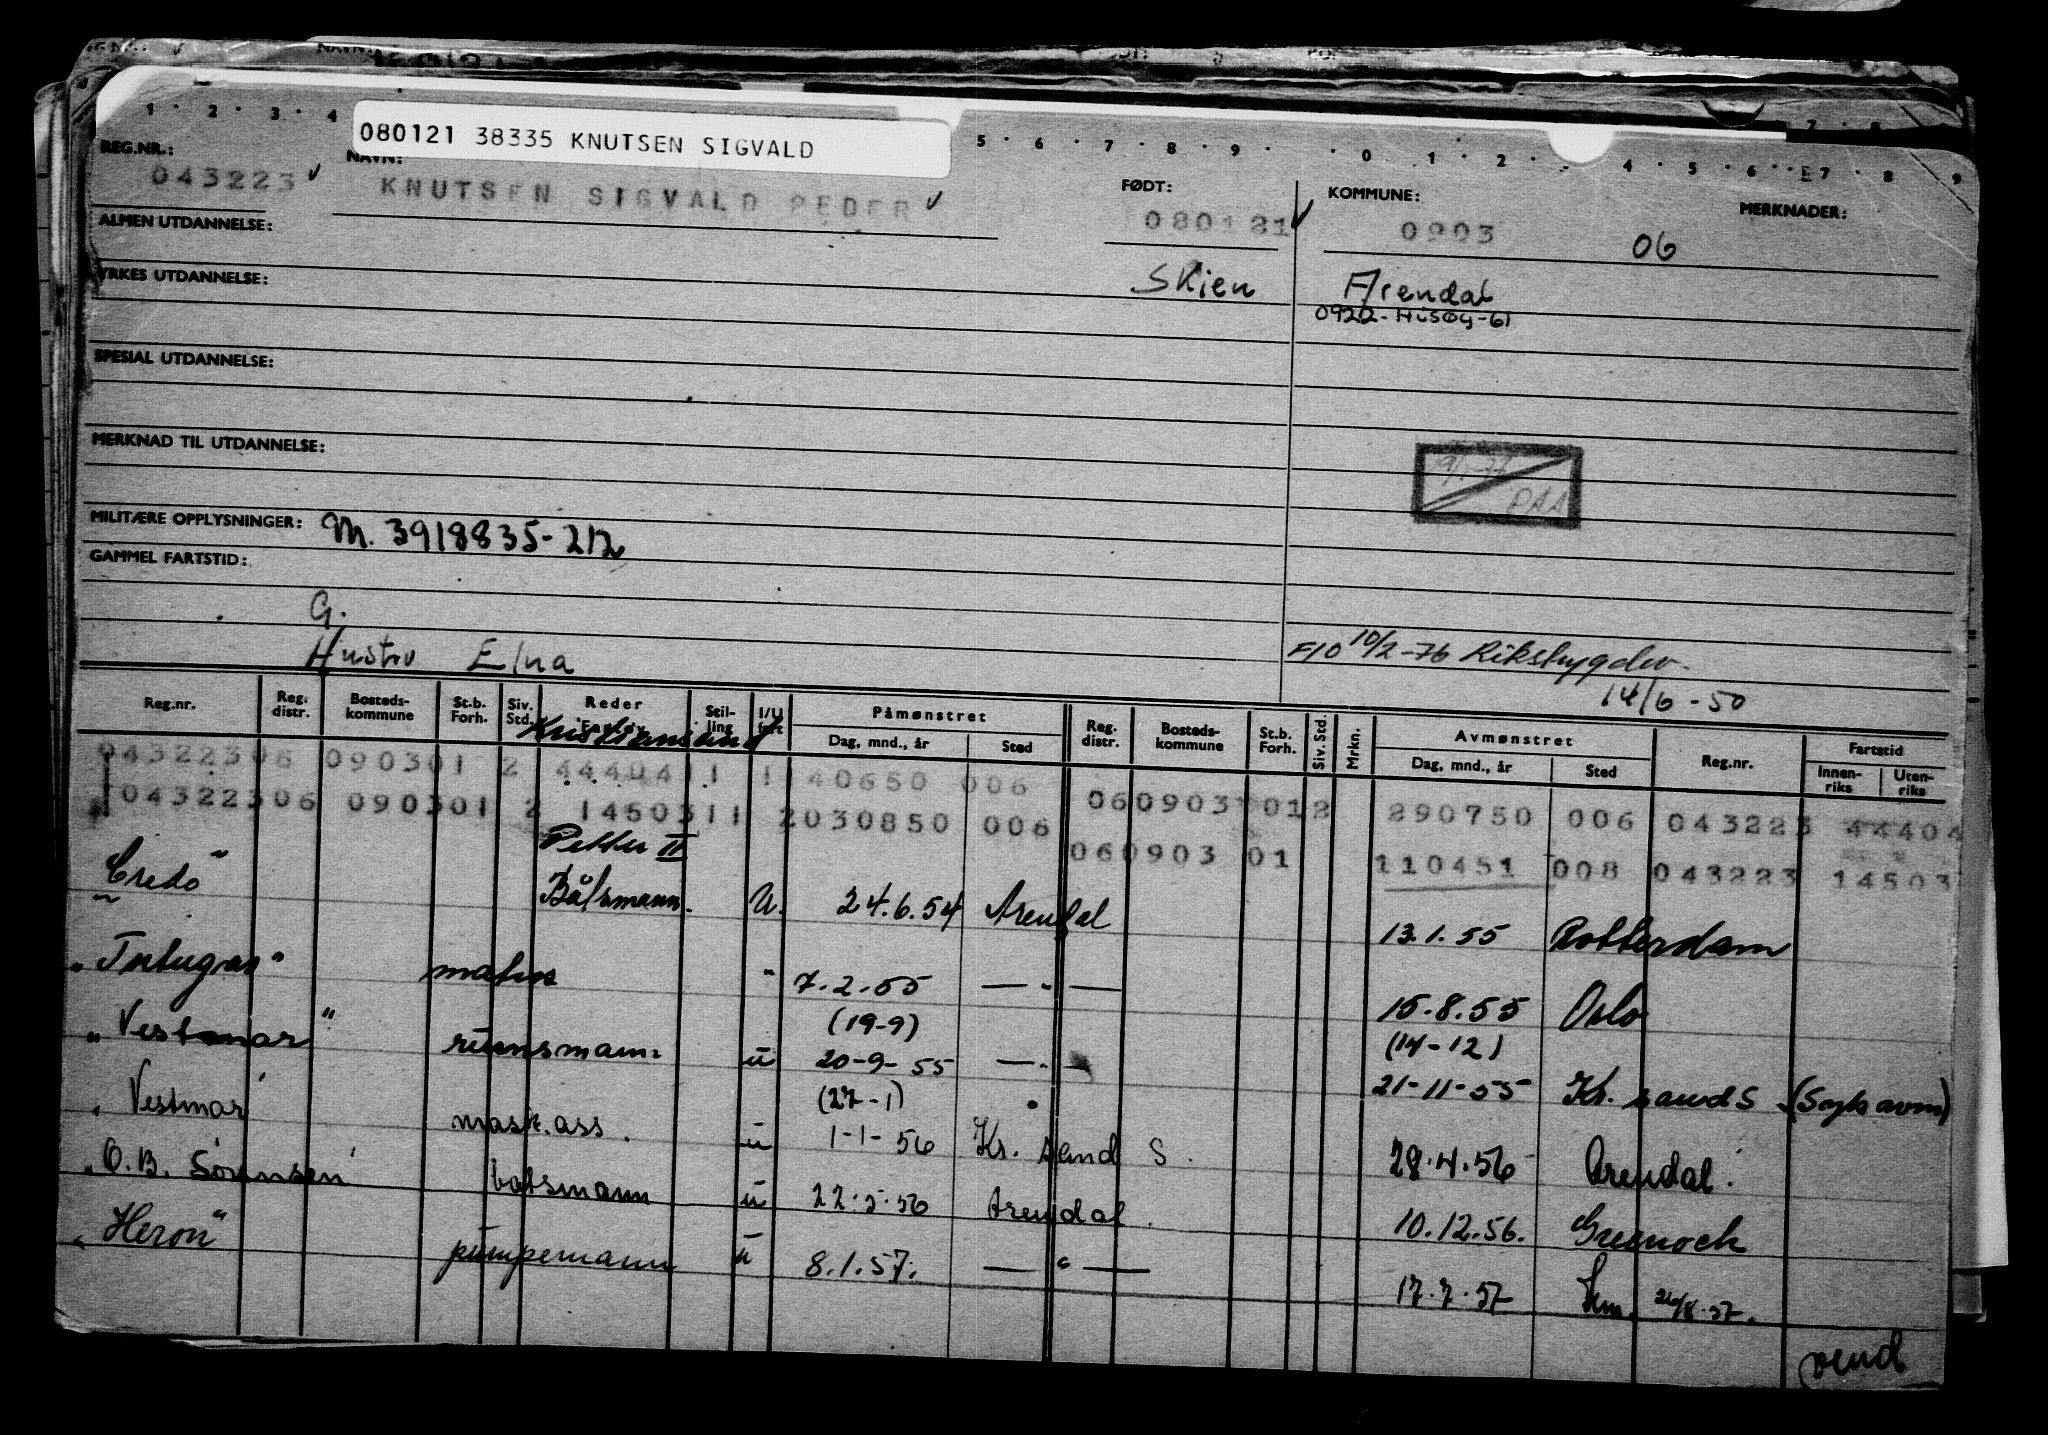 080121 38335 KNUTSEN SIGVALD
REG.NR.:
043223
NAVN:
KNUTSEN SIGVALD PEDER
FØDT:
080121
KOMMUNE:
0903
06
MERKNADER:
ALMEN UTDANNELSE:
Skien
Arendal
0922-Hisøy-61
YRKES UTDANNELSE:
SPESIAL UTDANNELSE:
MERKNAD TIL UTDANNELSE:
MILITÆRE OPPLYSNINGER: M. 3918835-212
GAMMEL FARTSTID:
G.
Hustru Elna
F/O 10/2-76 Rikstrygdev.
14/6-50
Reg.nr. Reg. distr. Bosteds-kommune St.b. Forh. Siv. Std. Reder Stil-ling I/U Påmønstret Dag, mnd., år Sted Reg. distr. Bosteds-kommune St.b. Forh. Siv. Std. Mrkn. Avmønstret Dag, mnd., år Sted Reg.nr. Fartstid Innen-riks Uten-riks
Kristiansand
04322306 090301 2 4440411 1 140650 006 060903 012 290750 006 043223 44404
04322306 090301 2 1450311 2030850 006 060903 01 110451 008 043223 14503
Petter II
"Credo" Båtsmann. U. 24.6.54 Arendal 13.1.55 Rotterdam
matros " 7.2.55 — " — 15.8.55 Oslo
(19-9) (14-12)
"Vestmar" ū 20-9-55 — " — 21-11-55 Kr. sand S
(27-1)
"Vestmar" mask.ass. ū 1-1-56 Kr. sand S. 28.4.56 Arendal.
"O.B. Sørensen" båtsmann ū 22.5.56 Arendal. 10.12.56. Greenock
"Heron" pumpemann ū 8.1.57. — " — 17.7.57 26/8.57.
vend